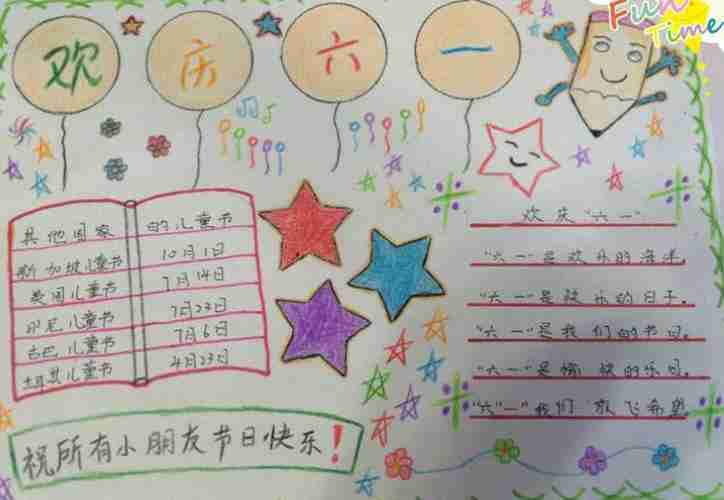 欢庆六一
Fun Time
其他国家的儿童节
新加坡儿童节 10月1日
英国儿童节 7月14日
印尼儿童节 7月23日
古巴儿童节 7月6日
土耳其儿童节 4月23日
祝所有小朋友节日快乐!
欢庆“六一”
“六一”是欢乐的海洋。
“六一”是欢乐的日子。
“六一”是我们的节日。
“六一”是愉快的乐园。
“六一”我们放飞希望